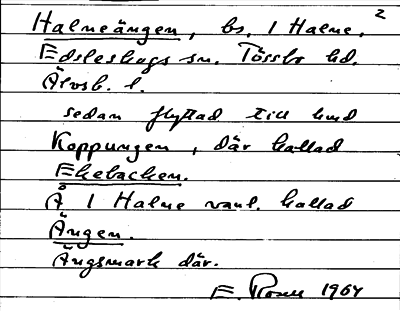 2
Halneängen, bs. 1 Halne,
Edsleskogs sn. Tössbo hd.
Älvsb. l.
sedan flyttad till
Koppungen, där kallad
Ekebacken.
Å 1 Halne vanl. kallad
Ängen.
Ängsmark där.
E. Rosell 1964